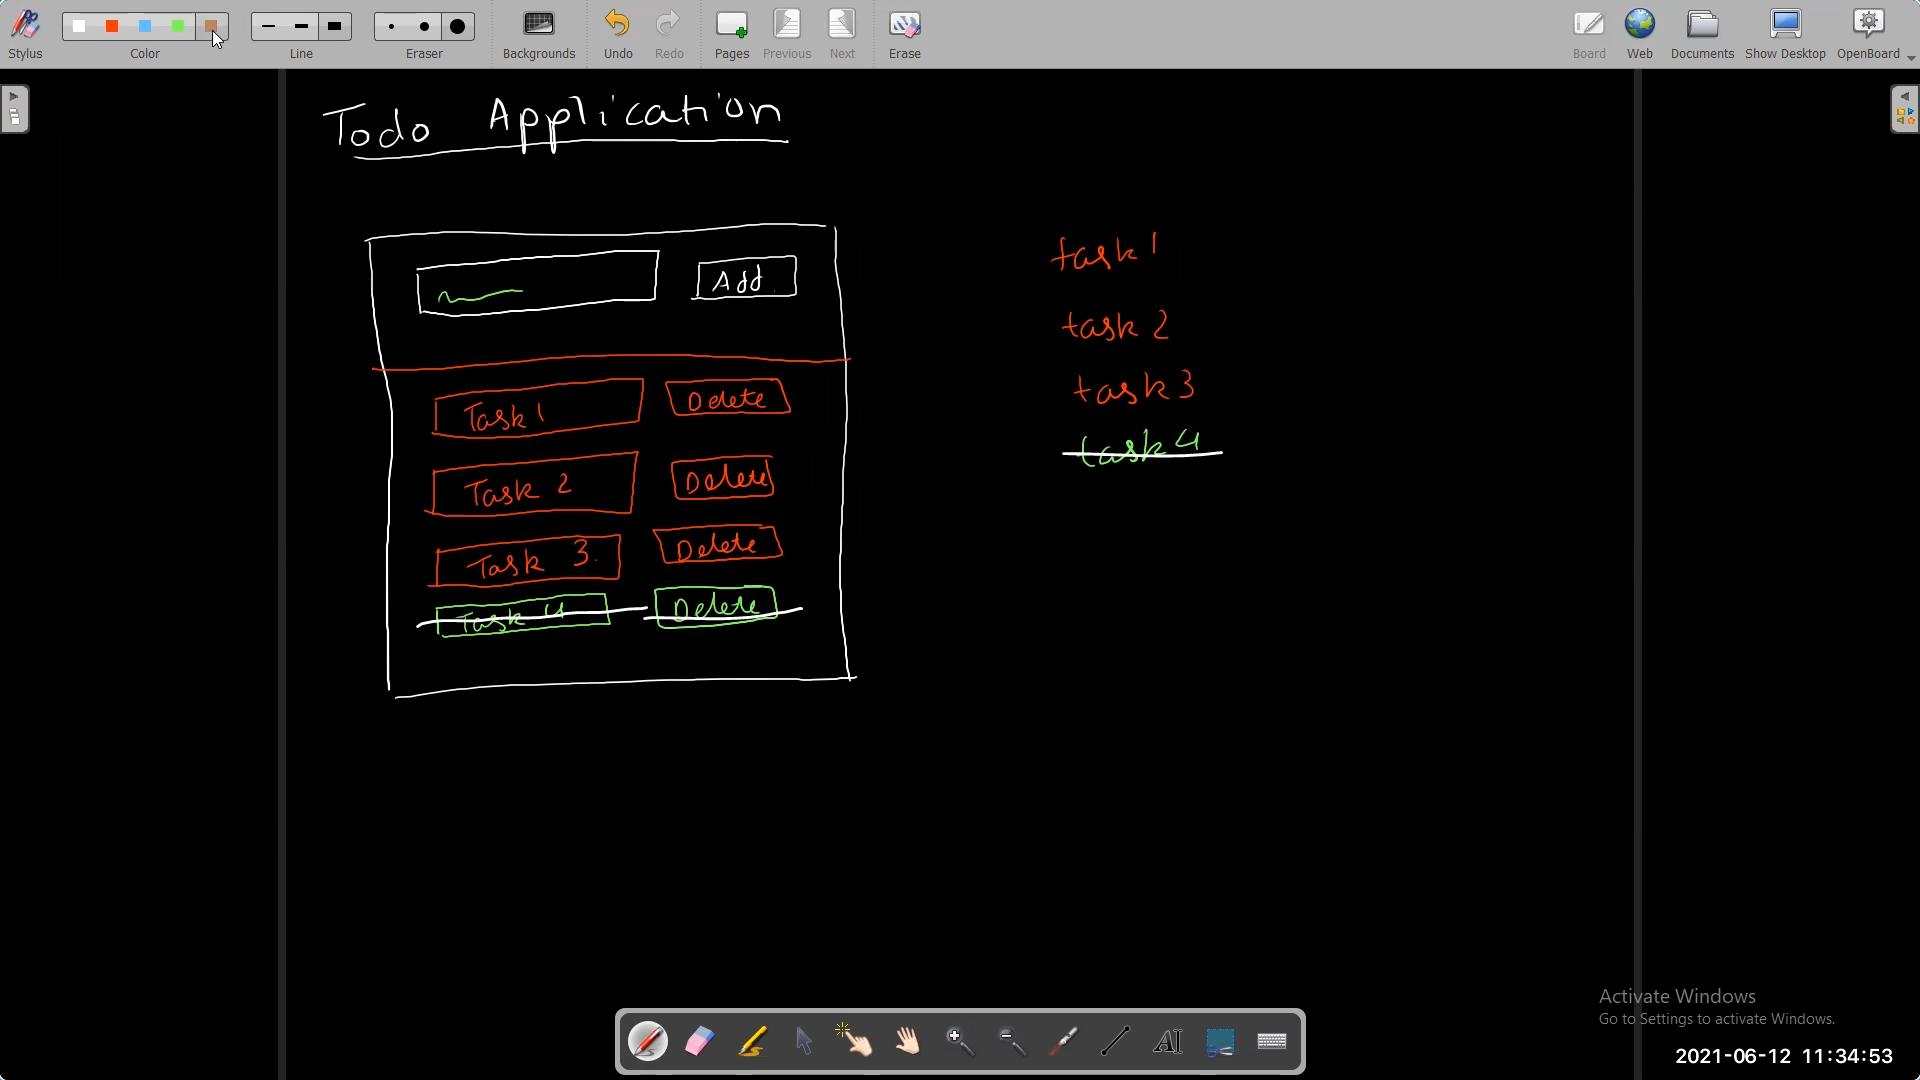 Stylus Color Line Eraser Backgrounds Undo Redo Pages Previous Next Erase Board Web Documents Show Desktop OpenBoard
Todo Application
Add
Task 1 Delete
Task 2 Delete
Task 3. Delete
Task 4 Delete
task 1
task 2
task 3
task 4
Activate Windows
Go to Settings to activate Windows.
2021-06-12 11:34:53